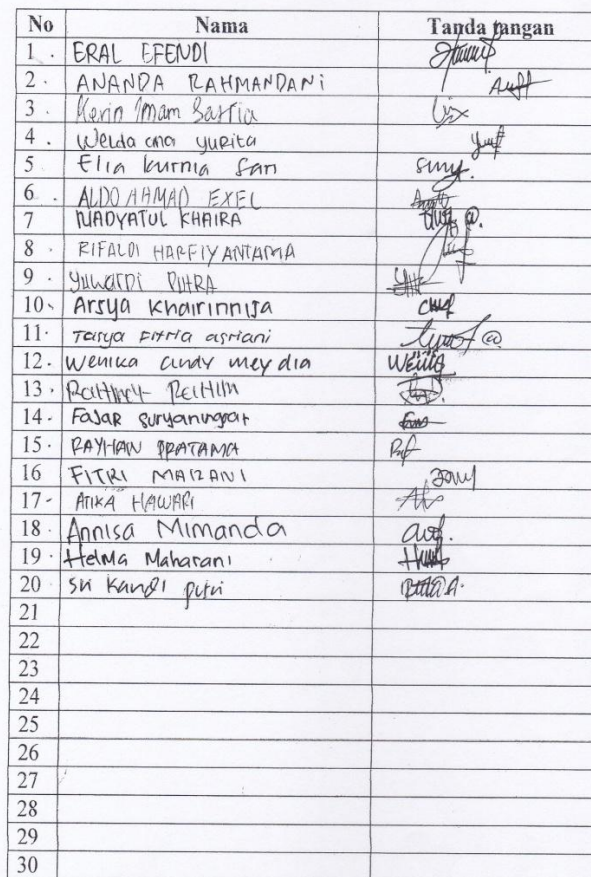 No Nama Tanda tangan
1. ERAL EFENDI
2. ANANDA RAHMANDANI
3. Kevin Imam Satria
4. Welda ona yurita
5 Elia kurnia sari
6. ALDO AHMAD EXEL
7 NADYATUL KHAIRA
8. RIFALDI HARFIYANTAMA
9. YUWARDI PUTRA
10. Arsya khairinnisa
11. Tasya Fitria asriani
12. Wenika cindy meydia
13.
14. Fajar suryaningrat
15. RAYHAN PRATAMA
16 FITRI MAIZANI
17- ATIKA HAWARI
18. Annisa Mimanda
19. Helma Maharani
20. Sri Kandi putri
21
22
23
24
25
26
27
28
29
30